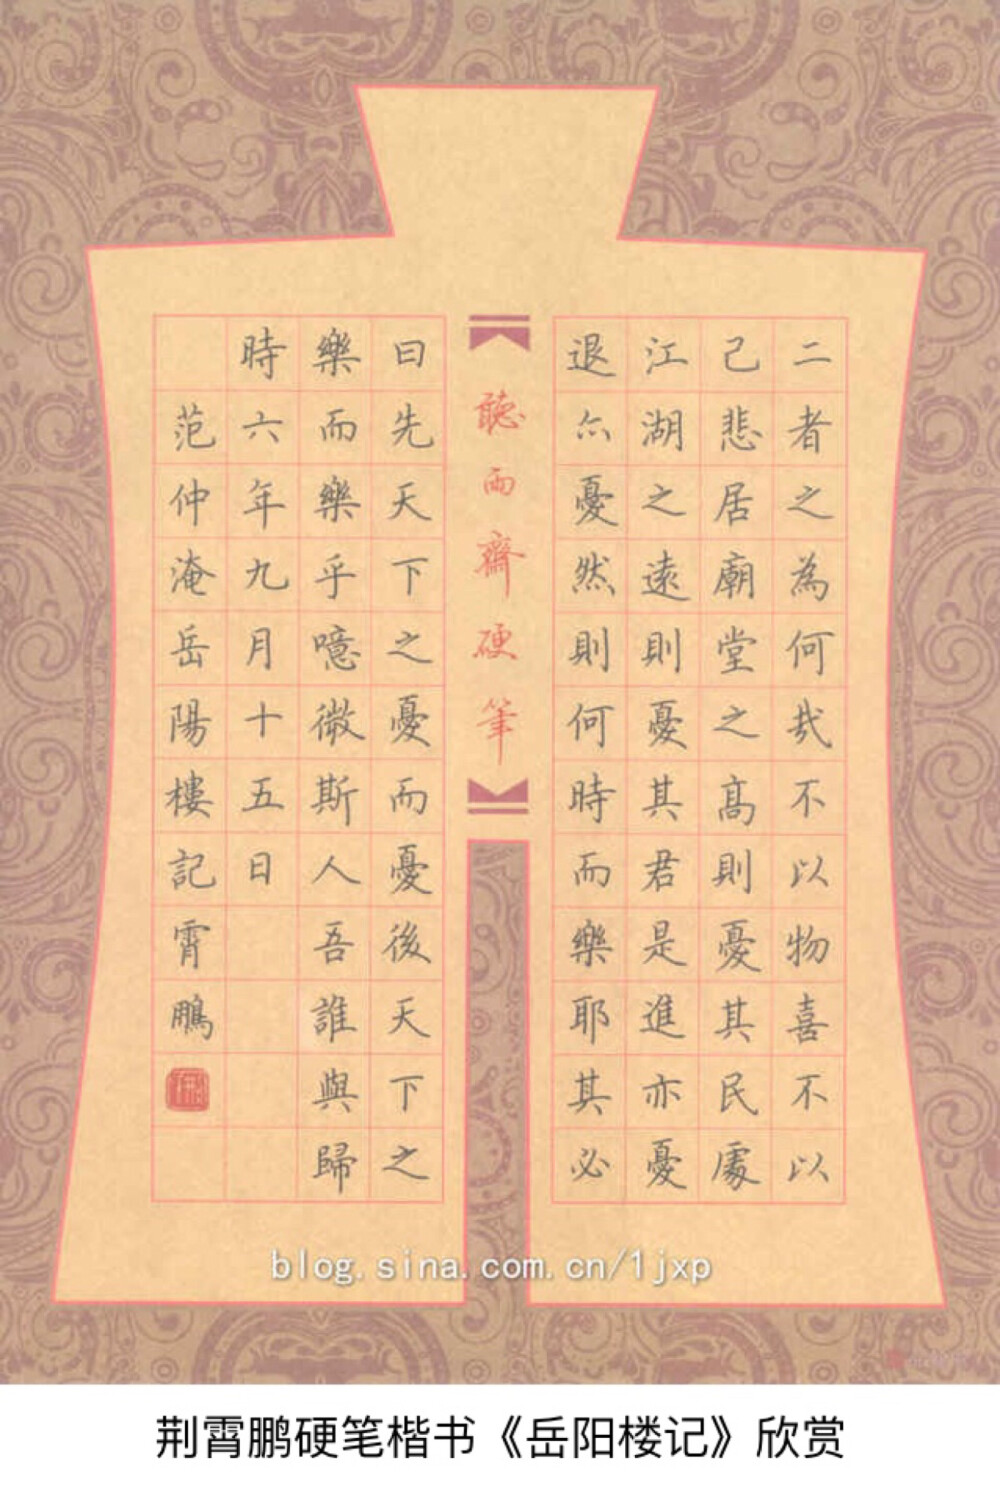 二者之為何哉不以物喜不以
己悲居廟堂之高則憂其民處
江湖之遠則憂其君是進亦憂
退亦憂然則何時而樂耶其必
聽雨齋硬筆
曰先天下之憂而憂後天下之
樂而樂乎噫微斯人吾誰與歸
時六年九月十五日
范仲淹岳陽樓記霄鵬
blog.sina.com.cn/1jxp
荆霄鹏硬笔楷书《岳阳楼记》欣赏